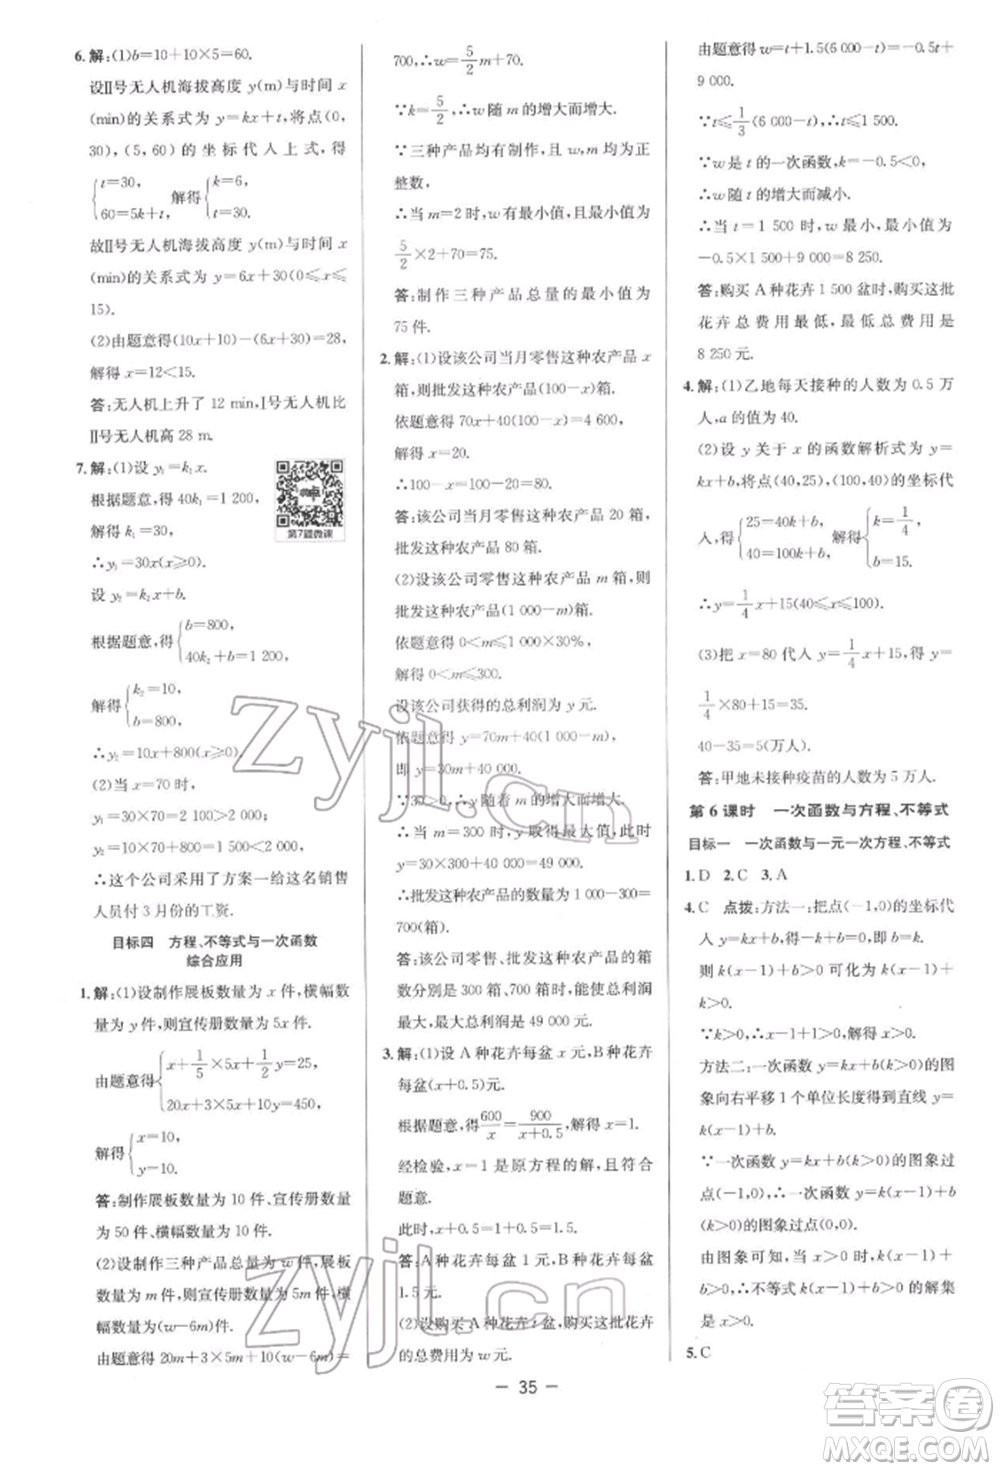 6.解:(1)b=10+10×5=60.
设Ⅱ号无人机海拔高度 y(m)与时间 x
(min)的关系式为 y=kx+t,将点(0,
30),(5,60)的坐标代人上式,得
{t=30, 60=5k+t, 解得{k=6, t=30.
故Ⅱ号无人机海拔高度 y(m)与时间 x
(min)的关系式为 y=6x+30(0≤x≤
15).
(2)由题意得(10x+10)-(6x+30)=28,
解得 x=12<15.
答:无人机上升了 12 min,Ⅰ号无人机比
Ⅱ号无人机高 28 m.
7.解:(1)设 y₁=k₁x.
根据题意,得 40k₁=1 200,
解得 k₁=30,
∴y₁=30x(x≥0).
设 y₂=k₂x+b.
第7题微课
根据题意,得{b=800, 40k₂+b=1 200,
解得{k₂=10, b=800,
∴y₂=10x+800(x≥0).
(2)当 x=70 时,
y₁=30×70=2 100>2 000;
y₂=10×70+800=1 500<2 000,
∴这个公司采用了方案一给这名销售
人员付 3 月份的工资.
目标四 方程、不等式与一次函数
综合应用
1.解:(1)设制作展板数量为 x 件,横幅数
量为 y 件,则宣传册数量为 5x 件.
由题意得{x+1/5×5x+1/2y=25, 20x+3×5x+10y=450,
解得{x=10, y=10.
答:制作展板数量为 10 件、宣传册数量
为 50 件、横幅数量为 10 件.
(2)设制作三种产品总量为 w 件,展板
数量为 m 件,则宣传册数量为 5m 件,横
幅数量为(w-6m)件.
由题意得 20m+3×5m+10(w-6m)=
700,∴w=5/2m+70.
∵k=5/2,∴w 随 m 的增大而增大.
∵三种产品均有制作,w,m 均为正
整数,
∴当 m=2 时,w 有最小值,且最小值为
5/2×2+70=75.
答:制作三种产品总量的最小值为
75 件.
2.解:(1)设该公司当月零售这种农产品 x
箱,则批发这种农产品(100-x)箱.
依题意得 70x+40(100-x)=4 600,
解得 x=20.
∴100-x=80.
答:该公司当月零售这种农产品 20 箱,
批发这种农产品 80 箱.
(2)设该公司零售这种农产品 m 箱,则
批发这种农产品(1 000-m)箱.
依题意得 0<m≤1 000×30%,
解得 0<m≤300.
设该公司获得的总利润为 y 元.
依题意得 y=70m+40(1 000-m),
即 y=30m+40 000.
∵30>0,∴y 随着 m 的增大而增大.
∴当 m=300 时,y 取得最大值,此时
y=30×300+40 000=49 000.
∴批发这种农产品的数量为 1 000-300=
700(箱).
答:该公司零售、批发这种农产品的箱
数分别是 300 箱、700 箱时,能使总利润
最大,最大总利润是 49 000 元.
3.解:(1)设 A 种花卉每盆 x 元,B 种花卉
每盆(x+0.5)元.
根据题意,得600/x=900/(x+0.5),解得 x=1.
经检验,x=1 是原方程的解,且符合
题意.
此时,x+0.5=1+0.5=1.5.
答:A 种花卉每盆 1 元,B 种花卉每盆
1.5 元.
(2)设购买 A 种花卉 t 盆,购买这批花卉
的总费用为 w 元.
由题意得 w=t+1.5(6 000-t)=-0.5t+
9 000.
∵t≤1/3(6 000-t),∴t≤1 500.
∵w 是 t 的一次函数,k=-0.5<0,
∴w 随 t 的增大而减小.
∴当 t=1 500 时,w 最小,最小值为
-0.5×1 500+9 000=8 250.
答:购买 A 种花卉 1 500 盆时,购买这批
花卉总费用最低,最低总费用是
8 250 元.
4.解:(1)乙地每天接种的人数为 0.5 万
人,a 的值为 40.
(2)设 y 关于 x 的函数解析式为 y=
kx+b,将点(40,25),(100,40)的坐标代
人,得{25=40k+b, 40=100k+b, 解得{k=1/4, b=15.
∴y=1/4x+15(40≤x≤100).
(3)把 x=80 代人 y=1/4x+15,得 y=
1/4×80+15=35.
40-35=5(万人).
答:甲地未接种疫苗的人数为 5 万人.
第 6 课时 一次函数与方程、不等式
目标一 一次函数与一元一次方程、不等式
1.D 2.C 3.A
4.C 点拨:方法一:把点(-1,0)的坐标代
人 y=kx+b,得-k+b=0,即 b=k,
则 k(x-1)+b>0 可化为 k(x-1)+
k>0.
∵k>0,∴x-1+1>0,解得 x>0.
方法二:一次函数 y=kx+b(k>0)的图
象向右平移 1 个单位长度后得到直线 y=
k(x-1)+b.
∵一次函数 y=kx+b(k>0)的图象过
点(-1,0),∴一次函数 y=k(x-1)+b
(k>0)的图象过点(0,0).
由图象可知,当 x>0 时,k(x-1)+
b>0,∴不等式 k(x-1)+b>0 的解集
为 x>0.
5.C
35
zyjl.cn
zyjl.cn
答案圈
MXQE.COM